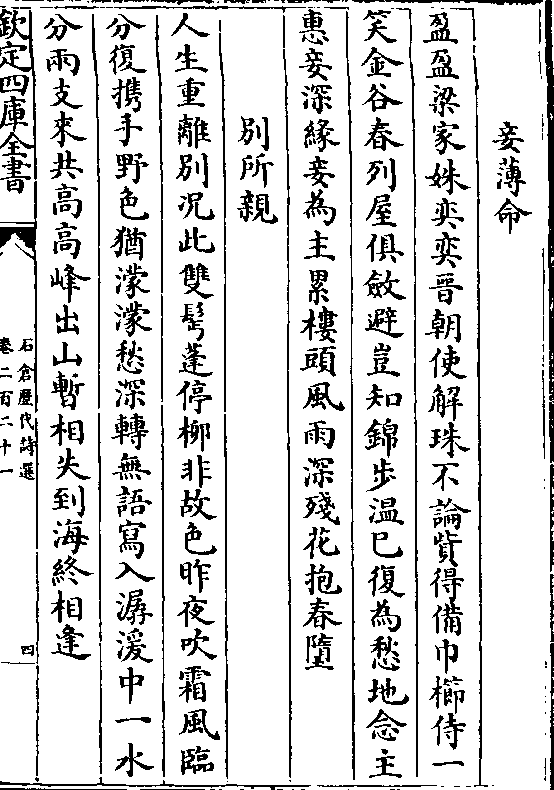 妾薄命
盈盈梁家姝奕奕晉朝使解珠不論貲得備巾櫛侍一
笑金谷春列屋俱斂避豈知錦步温已復為愁地念主
惠妾深緣妾為主累樓頭風雨深殘花抱春墮
別所親
人生重離別况此雙髩蓬停柳非故色昨夜吹霜風臨
分復携手野色猶濛濛愁深轉無語寫入潺湲中一水
分兩支來共高高峰出山暫相失到海終相逢
欽定四庫全書
石倉歷代詩選
卷二百二十一
四